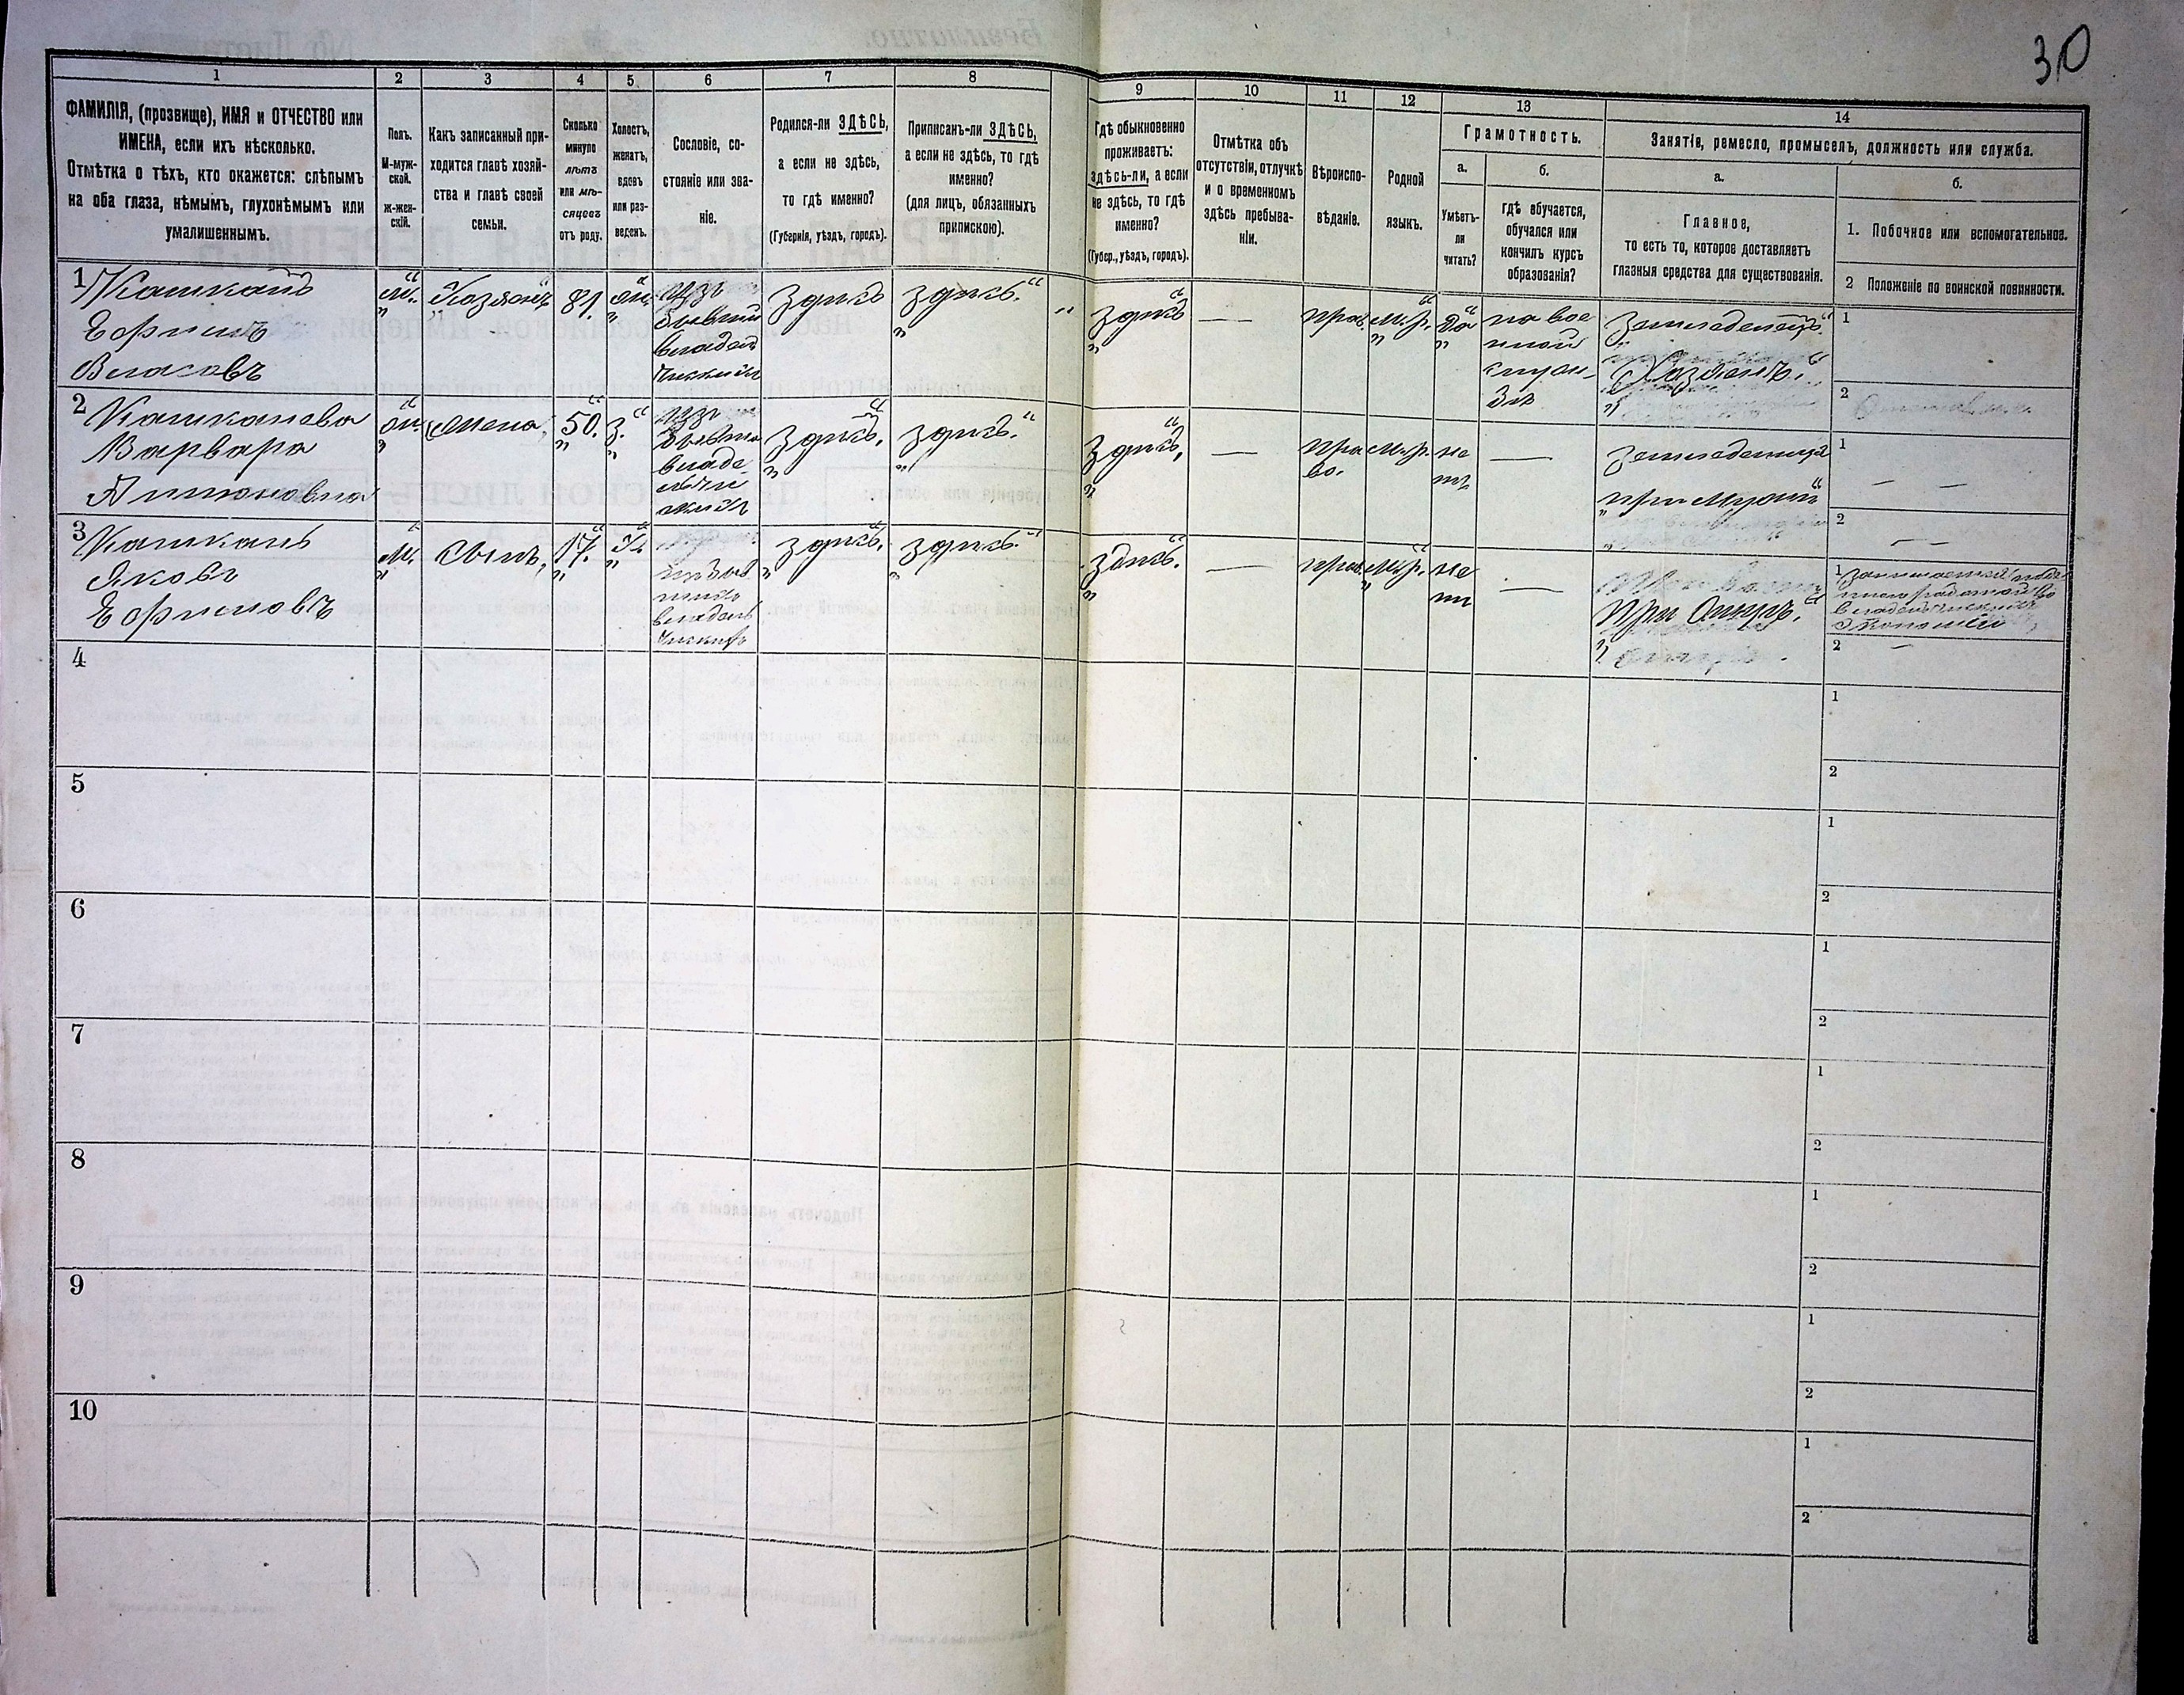 30
1
2
3
4
5
6
7
8
9
10
11
12
13
14
ФАМИЛІЯ, (прозвище), ИМЯ и ОТЧЕСТВО или
ИМЕНА, если ихъ нѣсколько.
Отмѣтка о тѣхъ, кто окажется: слѣпымъ
на оба глаза, нѣмымъ, глухонѣмымъ или
умалишеннымъ.
Полъ.
М-муж-
ской.
Ж-жен-
скій.
Какъ записанный при-
ходится главѣ хозяй-
ства и главѣ своей
семьи.
Сколько
минуло
лѣтъ
или мѣ-
сяцевъ
отъ роду.
Холостъ,
женатъ,
вдовъ
или раз-
веденъ.
Сословіе, со-
стояніе или зва-
ніе.
Родился-ли ЗДѢСЬ,
а если не здѣсь,
то гдѣ именно?
(Губернія, уѣздъ, городъ).
Приписанъ-ли ЗДѢСЬ,
а если не здѣсь, то гдѣ
именно?
(для лицъ, обязанныхъ
припискою).
Гдѣ обыкновенно
проживаетъ:
здѣсь-ли, а если
не здѣсь, то гдѣ
именно?
(Губер., уѣздъ, городъ).
Отмѣтка объ
отсутствіи, отлучкѣ
и о временномъ
здѣсь пребыва-
ніи.
Вѣроиспо-
вѣданіе.
Родной
языкъ.
Грамотность.
а.
Умѣетъ-
ли
читать?
б.
гдѣ обучается,
обучался или
кончилъ курсъ
образованія?
Занятіе, ремесло, промыселъ, должность или служба.
а.
Главное,
то есть то, которое доставляетъ
главныя средства для существованія.
б.
1. Побочное или вспомогательное.
2 Положеніе по воинской повинности.
1
Кашканъ
Ефимъ
Власовъ
м.
Хозяинъ
81.
ж.
изъ
бывши
владел
ческихъ
здѣсь
здѣсь.
здѣсь
—
прав.
м.р.
да
на вое
нной
служ-
бѣ
Земледелецъ
Хозяинъ.
1
2
2
Кашканева
Варвара
Антоновна
ж.
жена,
50.
з.
изъ
бывши
владе
льче
скихъ
здѣсь,
здѣсь.
здѣсь,
—
пра
во.
м.р.
не
тъ
—
земледелица
при Мужѣ
1
— —
2
—
3
Кашканъ
Яковъ
Ефимовъ
м.
Сынъ,
17.
х.
изъ быв
шихъ
владель
ческихъ
здѣсь.
здѣсь.
здѣсь.
—
прав.
м.р.
не
тъ
—
При Отцѣ.
1
занимается поде
нною работой во
владельческихъ
Экономіи
2
—
4
1
2
5
1
2
6
1
2
7
1
2
8
1
2
9
1
2
10
1
2